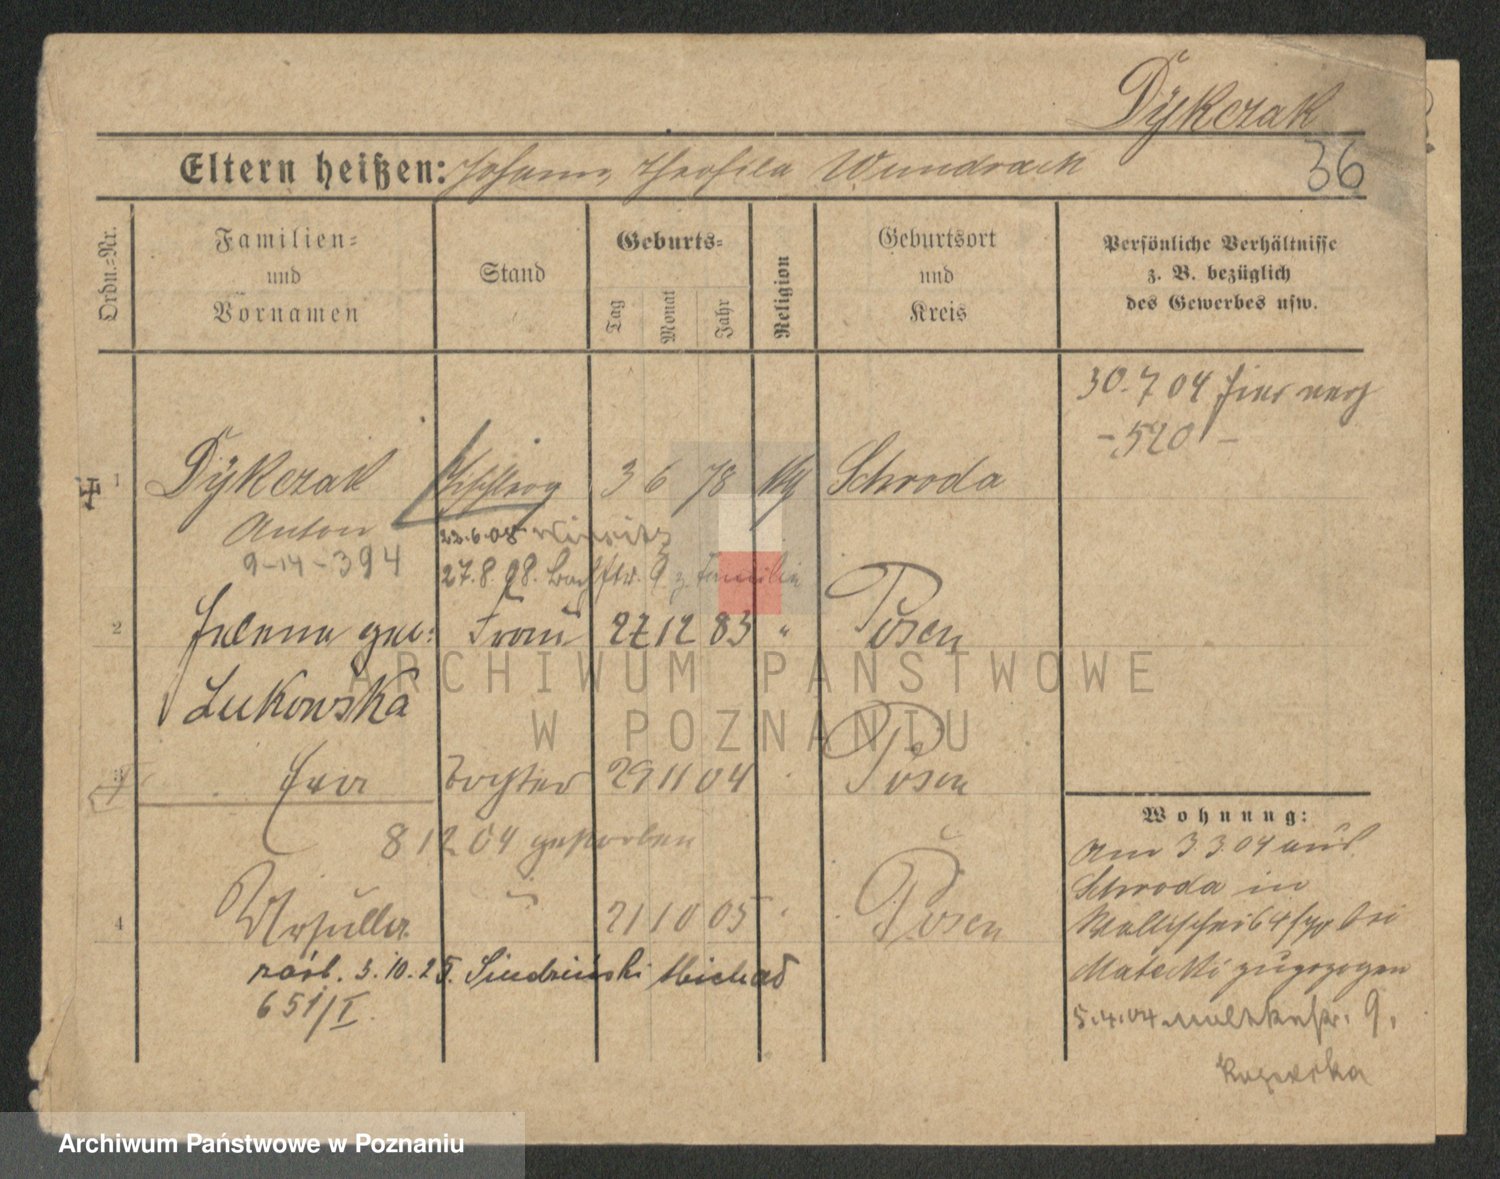 Dÿkczak
Eltern heißen: Johann, Theofila Wundrack
36
Ordn.-Nr.
Familien-
und
Vornamen
Stand
Geburts-
Tag
Monat
Jahr
Religion
Geburtsort
und
Kreis
Persönliche Verhältnisse
z. B. bezüglich
des Gewerbes usw.
30.7 04 hier
- 520 -
1 Dÿkczak 3 6 78 Schroda
Anton
22.6.08
9-14-394
27.8.08. z. Familie
2 Helena geb: Frau 27 12 83 " Posen
Lukowska
3 Eva Tochter 29 11 04 Posen
8 12 04 gestorben
4 Ursulla " 21 10 05 Posen
zaśl. 3.10.25. Siudziński Michał
651/I.
Wohnung:
Am 3 3.04 aus
Schroda in
Wallischei 64/70 bei
Matecki zugezogen
5.4.04 9.
ARCHIWUM PAŃSTWOWE
W POZNANIU
Archiwum Państwowe w Poznaniu